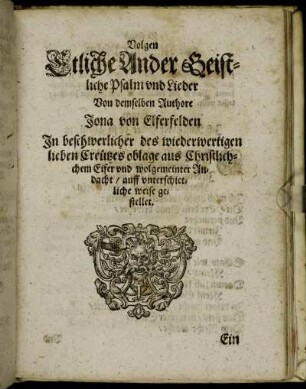 Volgen
Etliche Ander Geist-
liche Psalm vnd Lieder
Von demselben Authore
Jona von Elferfelden
In beschwerlicher des wiederwertigen
lieben Creützes oblage aus Christlich-
chem Eifer vnd wolgemeinter An-
dacht / auff vnterschiet-
liche weise ge-
stellet.
Ein